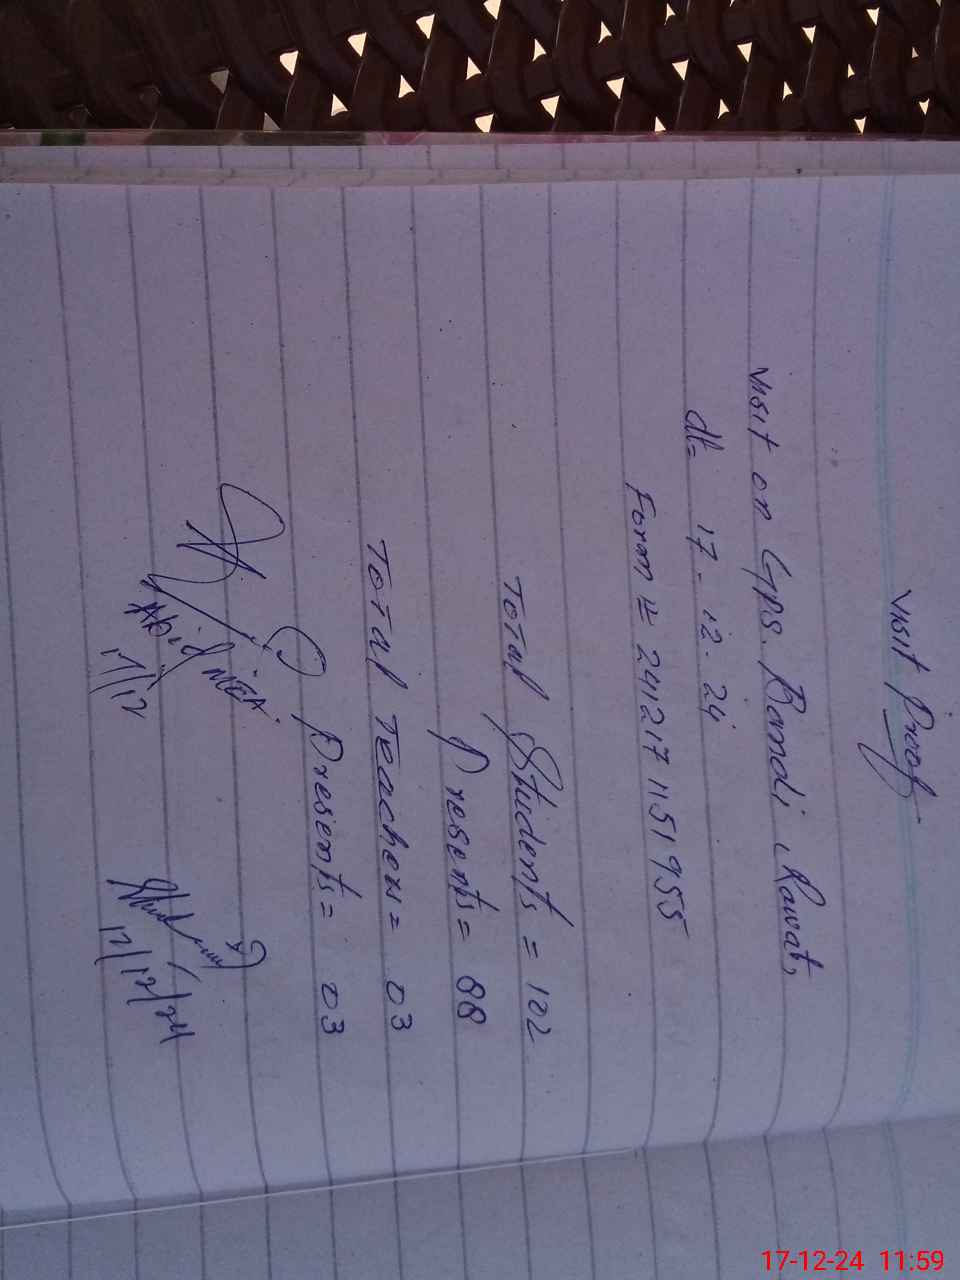 Visit Proof
Visit on Gps. Bamdi Rawat,
dt= 17-12-24
Form # 241217 1151955
Total Students = 102
Presents = 88
Total Teachers = 03
Presents = 03
Abid MEA.
17/12
17/12/24
17-12-24 11:59